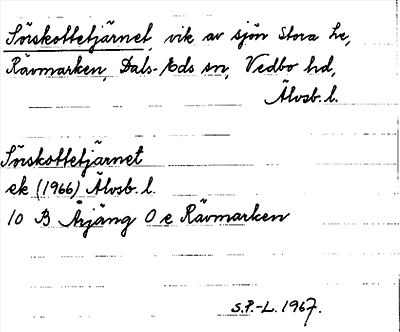 Sörskottetjärnet, vik av sjön Stora Le,
Rävmarken, Dals-Eds sn, Vedbo hd,
Älvsb. l.
Sörskottetjärnet
ek (1966) Älvsb. l.
10 B Årjäng 0 e Rävmarken
S.P.-L. 1967.